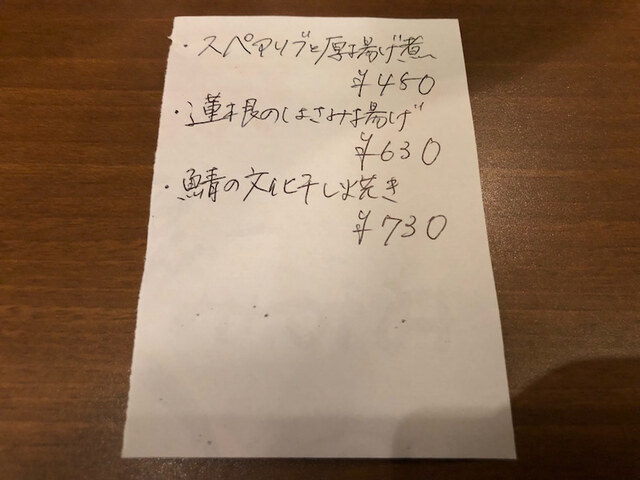 ・スペアリブと厚揚げ煮
¥480
・蓮根のはさみ揚げ
¥630
・鯖の文化干し焼き
¥730